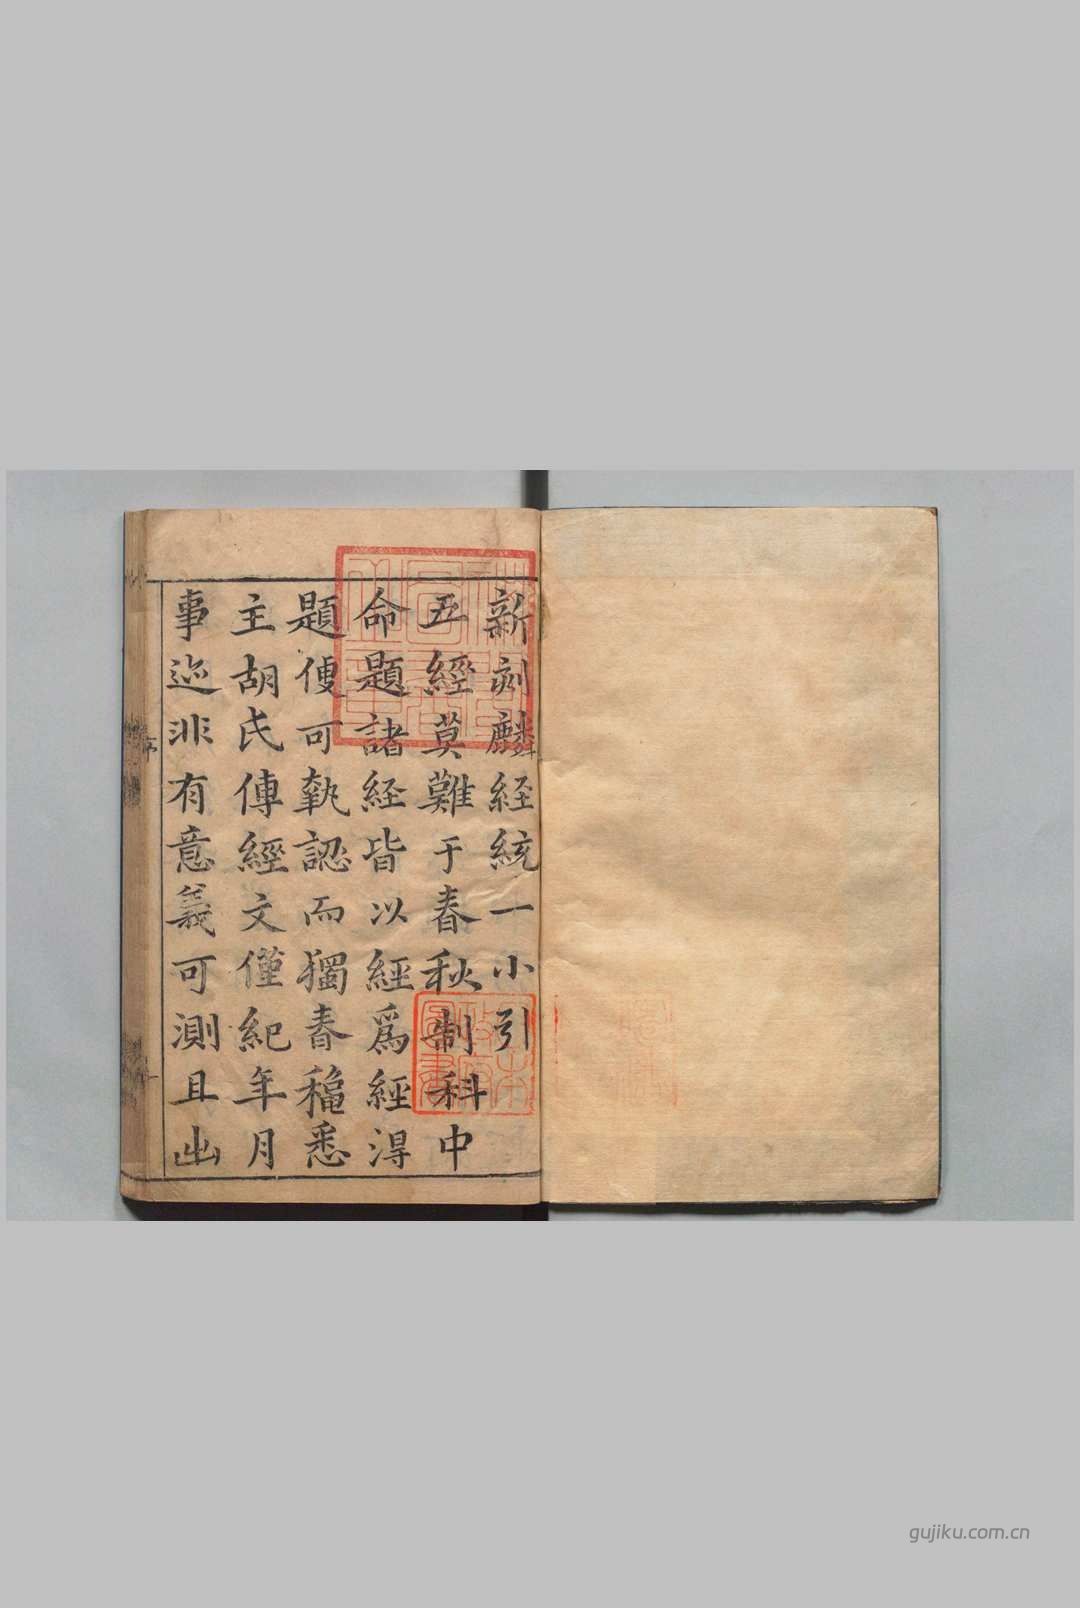 新刻麟経統一小引
五經莫難于春秋制科中
命題諸経皆以經爲經淂
題便可執認而獨春秋悉
主胡氏傳經文僅紀年月
事迹非有意義可測且出
序
一
gujiku.com.cn